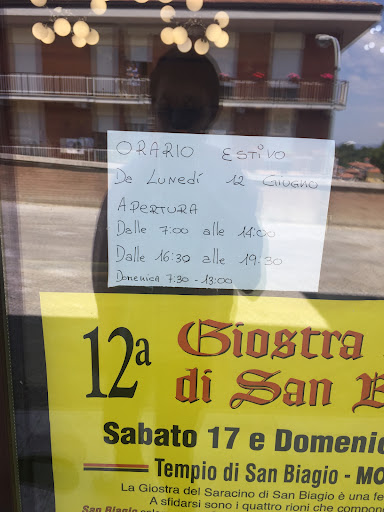 ORARIO ESTIVO
DA LUNEDÍ 12 GIUGNO
APERTURA
Dalle 7:00 alle 14:00
Dalle 16:30 alle 19:30
Domenica 7:30 - 13:00
12a Giostra
di San B
Sabato 17 e Domenic
Tempio di San Biagio - MO
La Giostra del Saracino di San Biagio è una fe
A sfidarsi sono i quattro rioni che compon
San Biagio